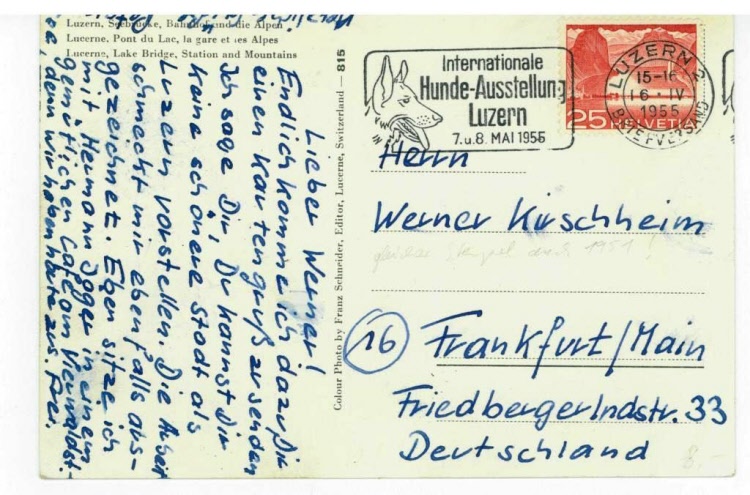 Luzern, Seebrücke, Bahnhof und die Alpen
Lucerne, Pont du Lac, la gare et les Alpes
Lucerne, Lake Bridge, Station and Mountains
Colour Photo by Franz Schneider, Editor, Lucerne, Switzerland — 815
Lieber Werner!
Endlich komme ich dazu Dir
einen Kartengruß zu senden
Ich sage Dir, Du kannst Dir
keine schönere Stadt als
Luzern vorstellen. Die Arbeit
schmeckt mir ebenfalls aus-
gezeichnet. Eben sitze ich
mit Hermann Jäger in einem
gemütlichen Café am Vierwaldst.-
see, denn wir haben heute frei.
Herzliche
Internationale
Hunde-Ausstellung
Luzern
7. u. 8. MAI 1955
LUZERN 2
15-16
16·IV
1955
BRIEFVERSAND
25 HELVETIA
Herrn
Werner Kirschheim
gleicher Stempel auch 1951!
16 Frankfurt/Main
Friedberger Lndstr. 33
Deutschland
8,-